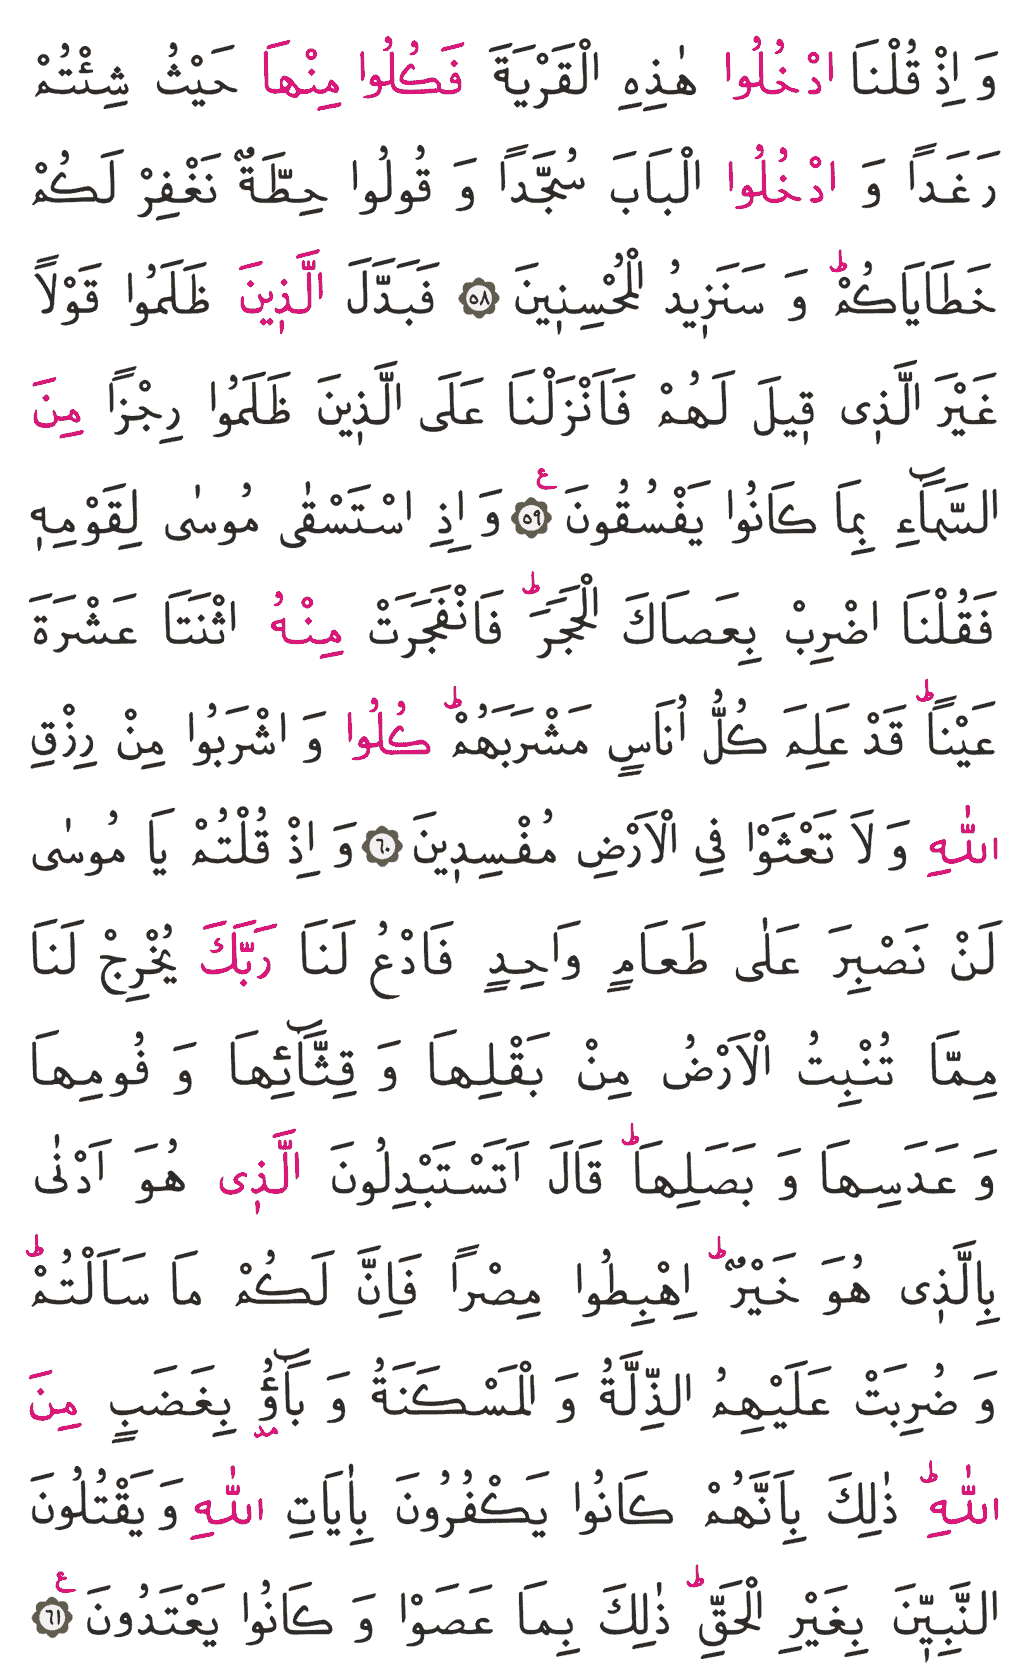 وَ اِذْ قُلْنَا ادْخُلُوا هٰذِهِ الْقَرْيَةَ فَكُلُوا مِنْهَا حَيْثُ شِئْتُمْ
رَغَداً وَ ادْخُلُوا الْبَابَ سُجَّداً وَ قُولُوا حِطَّةٌ نَغْفِرْ لَكُمْ
خَطَايَاكُمْؕ وَ سَنَزٖيدُ الْمُحْسِنٖينَ ﴿٥٨﴾ فَبَدَّلَ الَّذٖينَ ظَلَمُوا قَوْلاً
غَيْرَ الَّذٖى قٖيلَ لَهُمْ فَاَنْزَلْنَا عَلَى الَّذٖينَ ظَلَمُوا رِجْزاً مِنَ
السَّمَٓاءِ بِمَا كَانُوا يَفْسُقُونَ ﴿٥٩﴾ع وَ اِذِ اسْتَسْقٰى مُوسٰى لِقَوْمِهٖ
فَقُلْنَا اضْرِبْ بِعَصَاكَ الْحَجَرَؕ فَانْفَجَرَتْ مِنْهُ اثْنَتَا عَشْرَةَ
عَيْناًؕ قَدْ عَلِمَ كُلُّ اُنَاسٍ مَشْرَبَهُمْؕ كُلُوا وَ اشْرَبُوا مِنْ رِزْقِ
اللّٰهِ وَ لَا تَعْثَوْا فِى الْاَرْضِ مُفْسِدٖينَ ﴿٦٠﴾ وَ اِذْ قُلْتُمْ يَا مُوسٰى
لَنْ نَصْبِرَ عَلٰى طَعَامٍ وَاحِدٍ فَادْعُ لَنَا رَبَّكَ يُخْرِجْ لَنَا
مِمَّا تُنْبِتُ الْاَرْضُ مِنْ بَقْلِهَا وَ قِثَّٓائِهَا وَ فُومِهَا
وَ عَدَسِهَا وَ بَصَلِهَاؕ قَالَ اَتَسْتَبْدِلُونَ الَّذٖى هُوَ اَدْنٰى
بِالَّذٖى هُوَ خَيْرٌؕ اِهْبِطُوا مِصْراً فَاِنَّ لَكُمْ مَا سَاَلْتُمْؕ
وَ ضُرِبَتْ عَلَيْهِمُ الذِّلَّةُ وَ الْمَسْكَنَةُ وَ بَٓاؤُ۫ بِغَضَبٍ مِنَ
اللّٰهِؕ ذٰلِكَ بِاَنَّهُمْ كَانُوا يَكْفُرُونَ بِاٰيَاتِ اللّٰهِ وَ يَقْتُلُونَ
النَّبِيّٖنَ بِغَيْرِ الْحَقِّؕ ذٰلِكَ بِمَا عَصَوْا وَ كَانُوا يَعْتَدُونَ ﴿٦١﴾ع